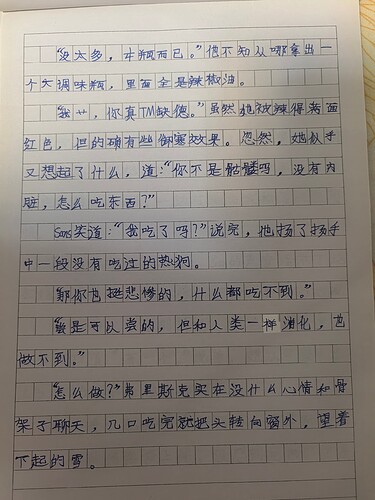 “没太多,半瓶而已。”他不知从哪拿出一
个大调味瓶,里面全是辣椒油。
“我艹,你真TM缺德。”虽然她被辣得满面
红色,但的确有些御寒效果。忽然,她似乎
又想起了什么,道:“你不是骷髅吗,没有内
脏,怎么吃东西?”
Sans笑道:“我吃了吗?”说完,他扬了扬手
中一段没有吃过的热狗。
“那你也挺悲惨的,什么都吃不到。”
“尝是可以尝的,但和人类一样消化,
做不到。”
“怎么做?”弗里斯克实在没什么心情和骨
架子聊天,几口吃完就把头转向窗外,望着
下起的雪。